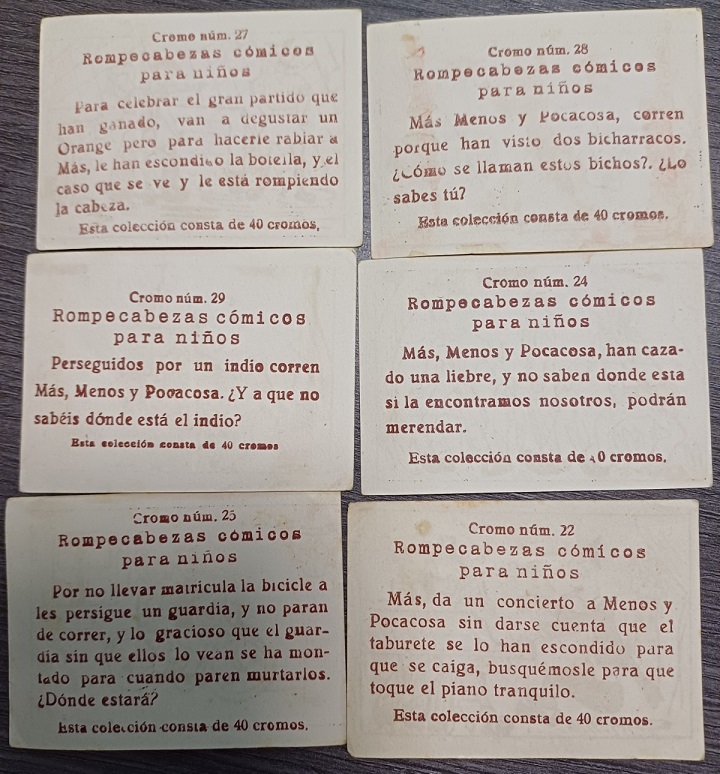 Cromo núm. 27
Rompecabezas cómicos
para niños
Para celebrar el gran partido que
han ganado, van a degustar un
Orange pero para hacerle rabiar a
Más, le han escondido la botella, y el
caso que se ve y le está rompiendo
la cabeza.
Esta colección consta de 40 cromos,
Cromo núm. 28
Rompecabezas cómicos
para niños
Más Menos y Pocacosa, corren
porque han visto dos bicharracos.
¿Cómo se llaman estos bichos?. ¿Lo
sabes tú?
Esta colección consta de 40 cromos.
Cromo núm. 29
Rompecabezas cómicos
para niños
Perseguidos por un indio corren
Más, Menos y Pocacosa. ¿Y a que no
sabéis dónde está el indio?
Esta colección consta de 40 cromos
Cromo núm. 24
Rompecabezas cómicos
para niños
Más, Menos y Pocacosa, han caza-
do una liebre, y no saben donde esta
si la encontramos nosotros, podrán
merendar.
Esta colección consta de 40 cromos.
Cromo núm. 25
Rompecabezas cómicos
para niños
Por no llevar matrícula la bicicle a
les persigue un guardia, y no paran
de correr, y lo gracioso que el guar-
dia sin que ellos lo vean se ha mon-
tado para cuando paren murtarlos.
¿Dónde estará?
Esta colección consta de 40 cromos.
Cromo núm. 22
Rompecabezas cómicos
para niños
Más, da un concierto a Menos y
Pocacosa sin darse cuenta que el
taburete se lo han escondido para
que se caiga, busquémosle para que
toque el piano tranquilo.
Esta colección consta de 40 cromos.